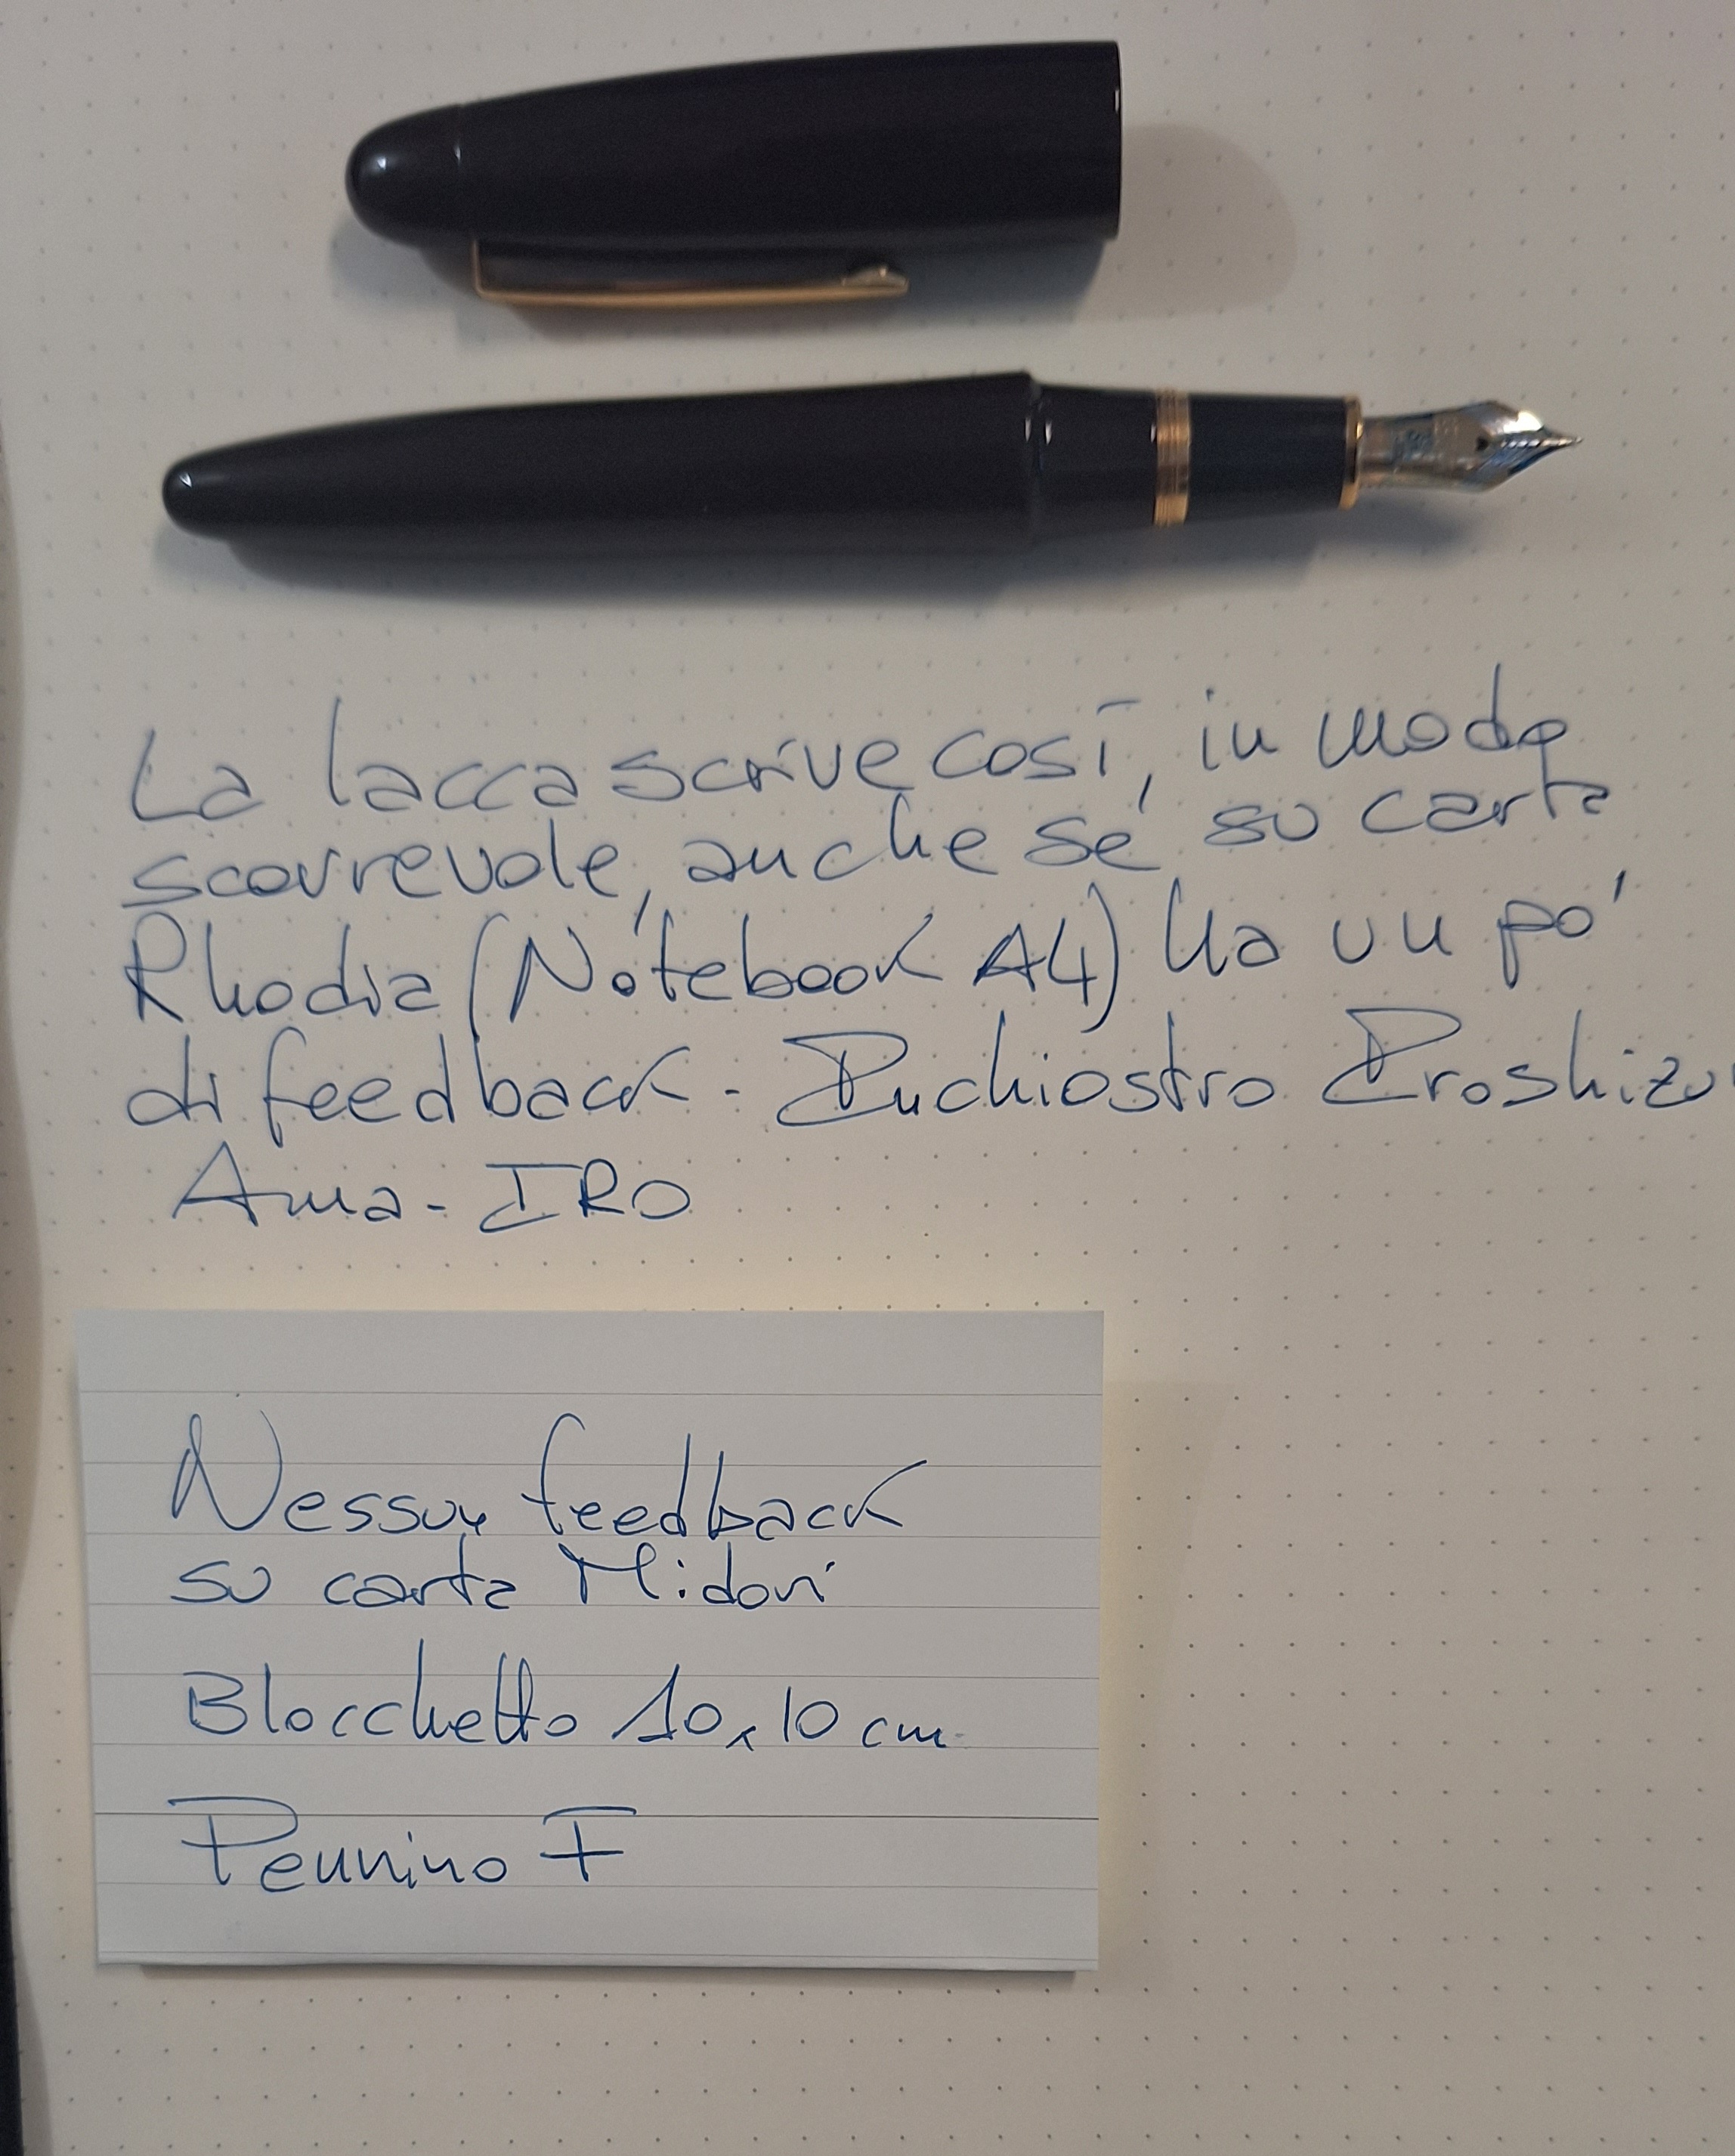 La lacca scrive così, in modo
scorrevole, anche se su carta
Rhodia (Notebook A4) ha un po'
di feedback - Inchiostro Iroshizu
Ama-IRO
Nessun feedback
su carta Midori
Blocchetto 10x10 cm
Pennino F